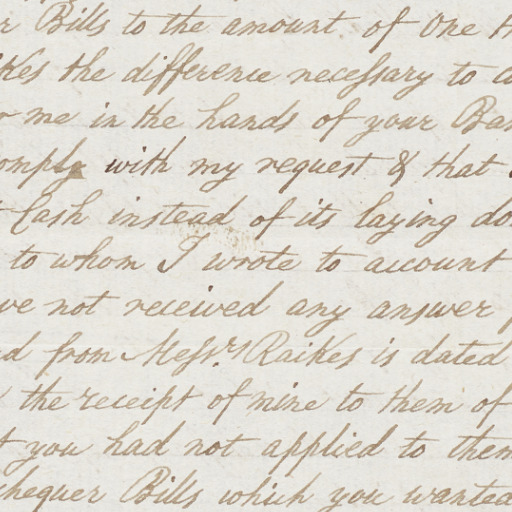 r Bills to the amount of One
kes the difference necessary to
me in the hands of your
comply with my request & that
Cash instead of its laying
to whom I wrote to account
ve not received any answer
d from Messrs Raikes is dated
the receipt of mine to them of
t you had not applied to them
chequer Bills which you wanted